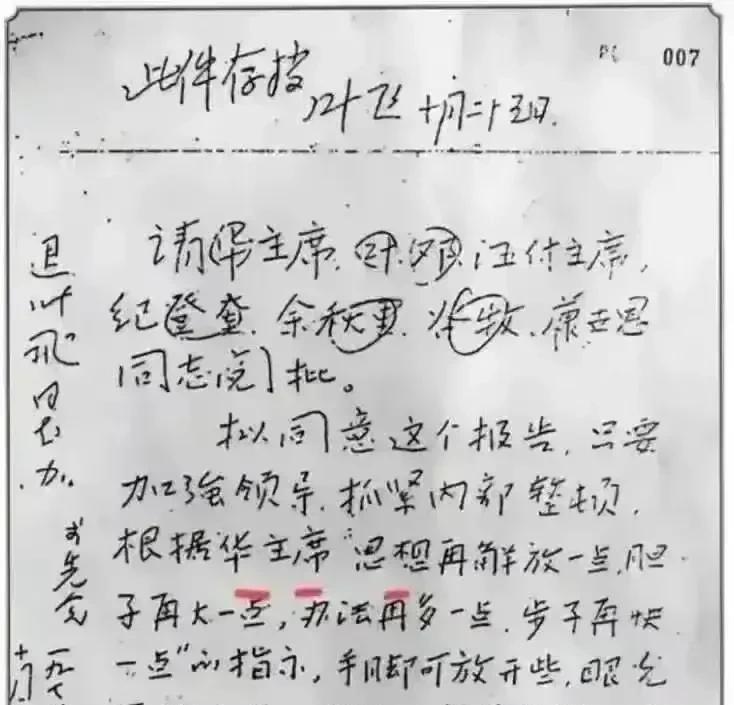 007
此件存档 叶飞 十月二十五日.
请华主席、叶、邓、汪付主席,
纪登奎、余秋里、谷牧、康世恩
同志阅批。
拟同意这个报告,只要
加強领导,抓紧内部整顿,
根据华主席“思想再解放一点,胆
子再大一点,办法再多一点,步子再快
一点”的指示,手脚即可放开些,眼光
退叶飞同志办.
李先念
一九七
十月